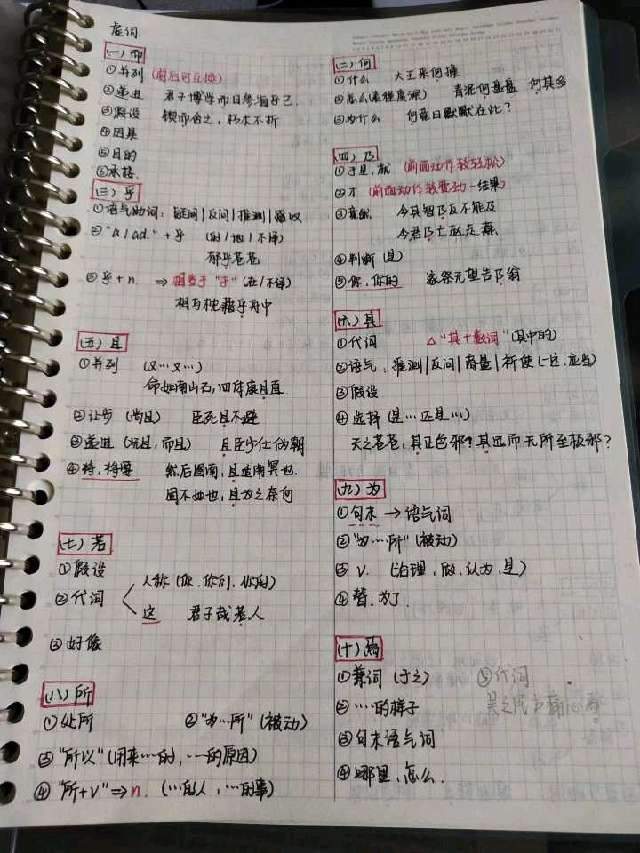 虚词
(一) 而
①并列 (前后可互换)
②递进 君子博学而日参省乎己
③假设 锲而舍之，朽木不折
④因果
⑤目的
⑥承接
(三) 乎
①语气助词：疑问|反问|推测|感叹
②"a/ad." + 乎 (的/地/不译)
郁乎苍苍
③乎+n. ⇒ 相当于"于" (在/不译)
相与枕藉乎舟中
(五) 且
①并列 (又…又…)
命如南山石，四体康且直
②让步 (尚且) 臣死且不避
③递进 (况且，而且) 且臣少仕伪朝
④将，将要 然后图南，且适南冥也
(七) 若
①假设
②代词
人称 (你，你们，你的)
这 君子哉若人
③好像
(八) 所
①处所 ②"为…所" (被动)
③"所以" (用来…的，…的原因)
④"所+v" ⇒ n. (…的人，…的事)
(二) 何
①什么 大王来何操
②怎么 青泥何盘盘 何其多
③为什么 何竟日默默在此？
(四) 乃
①于是，就
②才
③竟然 今其智乃反不能及
④判断 (是)
⑤你，你的 家祭无忘告乃翁
(六) 其
①代词 △"其+数词" (其中的)
②语气，推测|反问|商量|祈使
③假设
④选择 (是…还是…)
天之苍苍，其正色邪？其远而无所至极邪？
(九) 为
①句末 → 语气词
②"为…所" (被动)
③v. (治理，做，认为，是)
④替，为了.
(十) 焉
①兼词 (于之) ⑤代词
②…的样子
③句末语气词
④哪里，怎么.